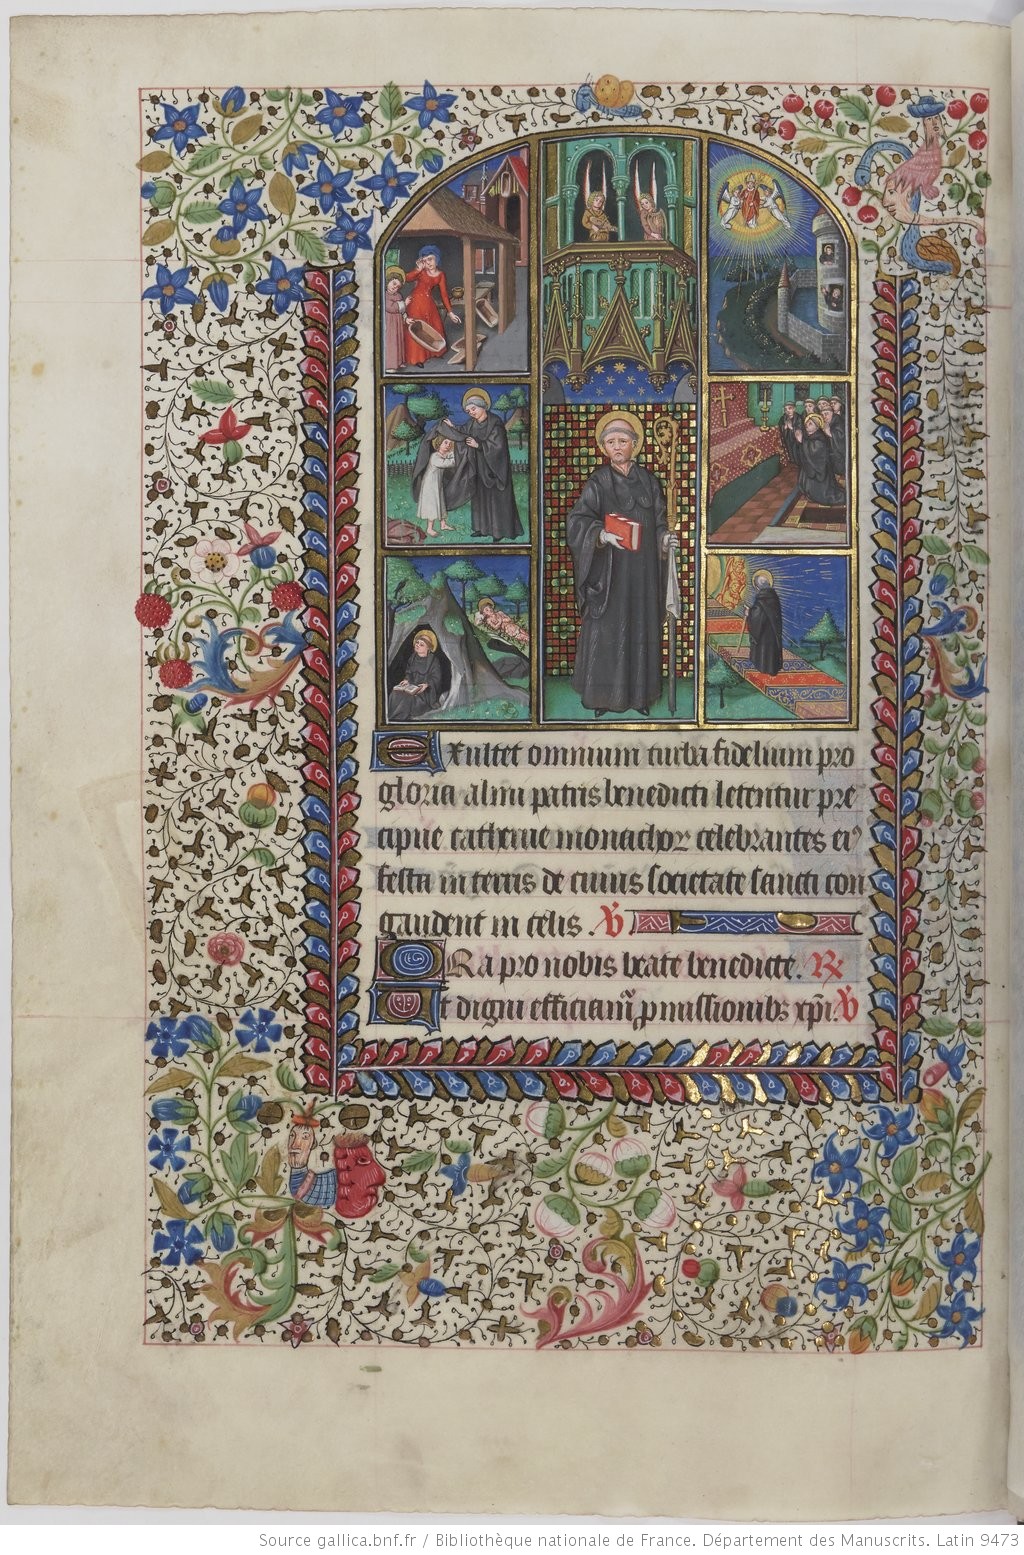 Exultet omnium turba fidelium pro
gloria almi patris benedicti letentur pre
cipue catherue monachoꝝ celebrantes eiꝰ
festa in terris de cuius societate sancti con
gaudent in celis. ℣
Ora pro nobis beate benedicte. ℟
Ut digni efficiam᷒ ꝓmissionibꝫ xp̄i. ℣
Source gallica.bnf.fr / Bibliothèque nationale de France. Département des Manuscrits. Latin 9473